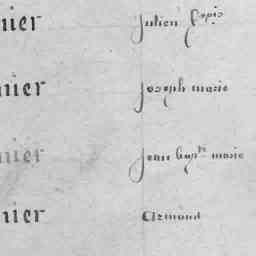 nier Julien
nier Joseph marie
nier Jean bapte marie
nier Armand